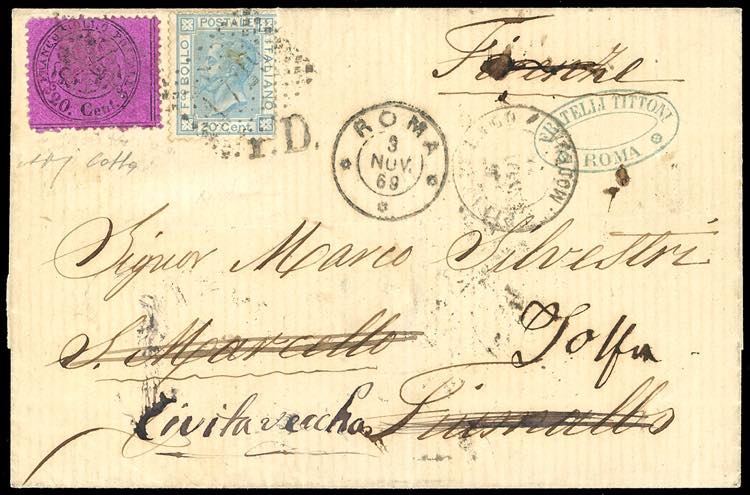 FRANCO BOLLO POSTALE
20 Cent.
POSTALE
ITALIANO
FRANCO BOLLO
20 Cent.
Firenze
P.D.
ROMA
3
NOV.
69
FRATELLI TITTONI
ROMA
Signor Marco Silvestri
S. Marcello
Tolfa
Civitavecchia